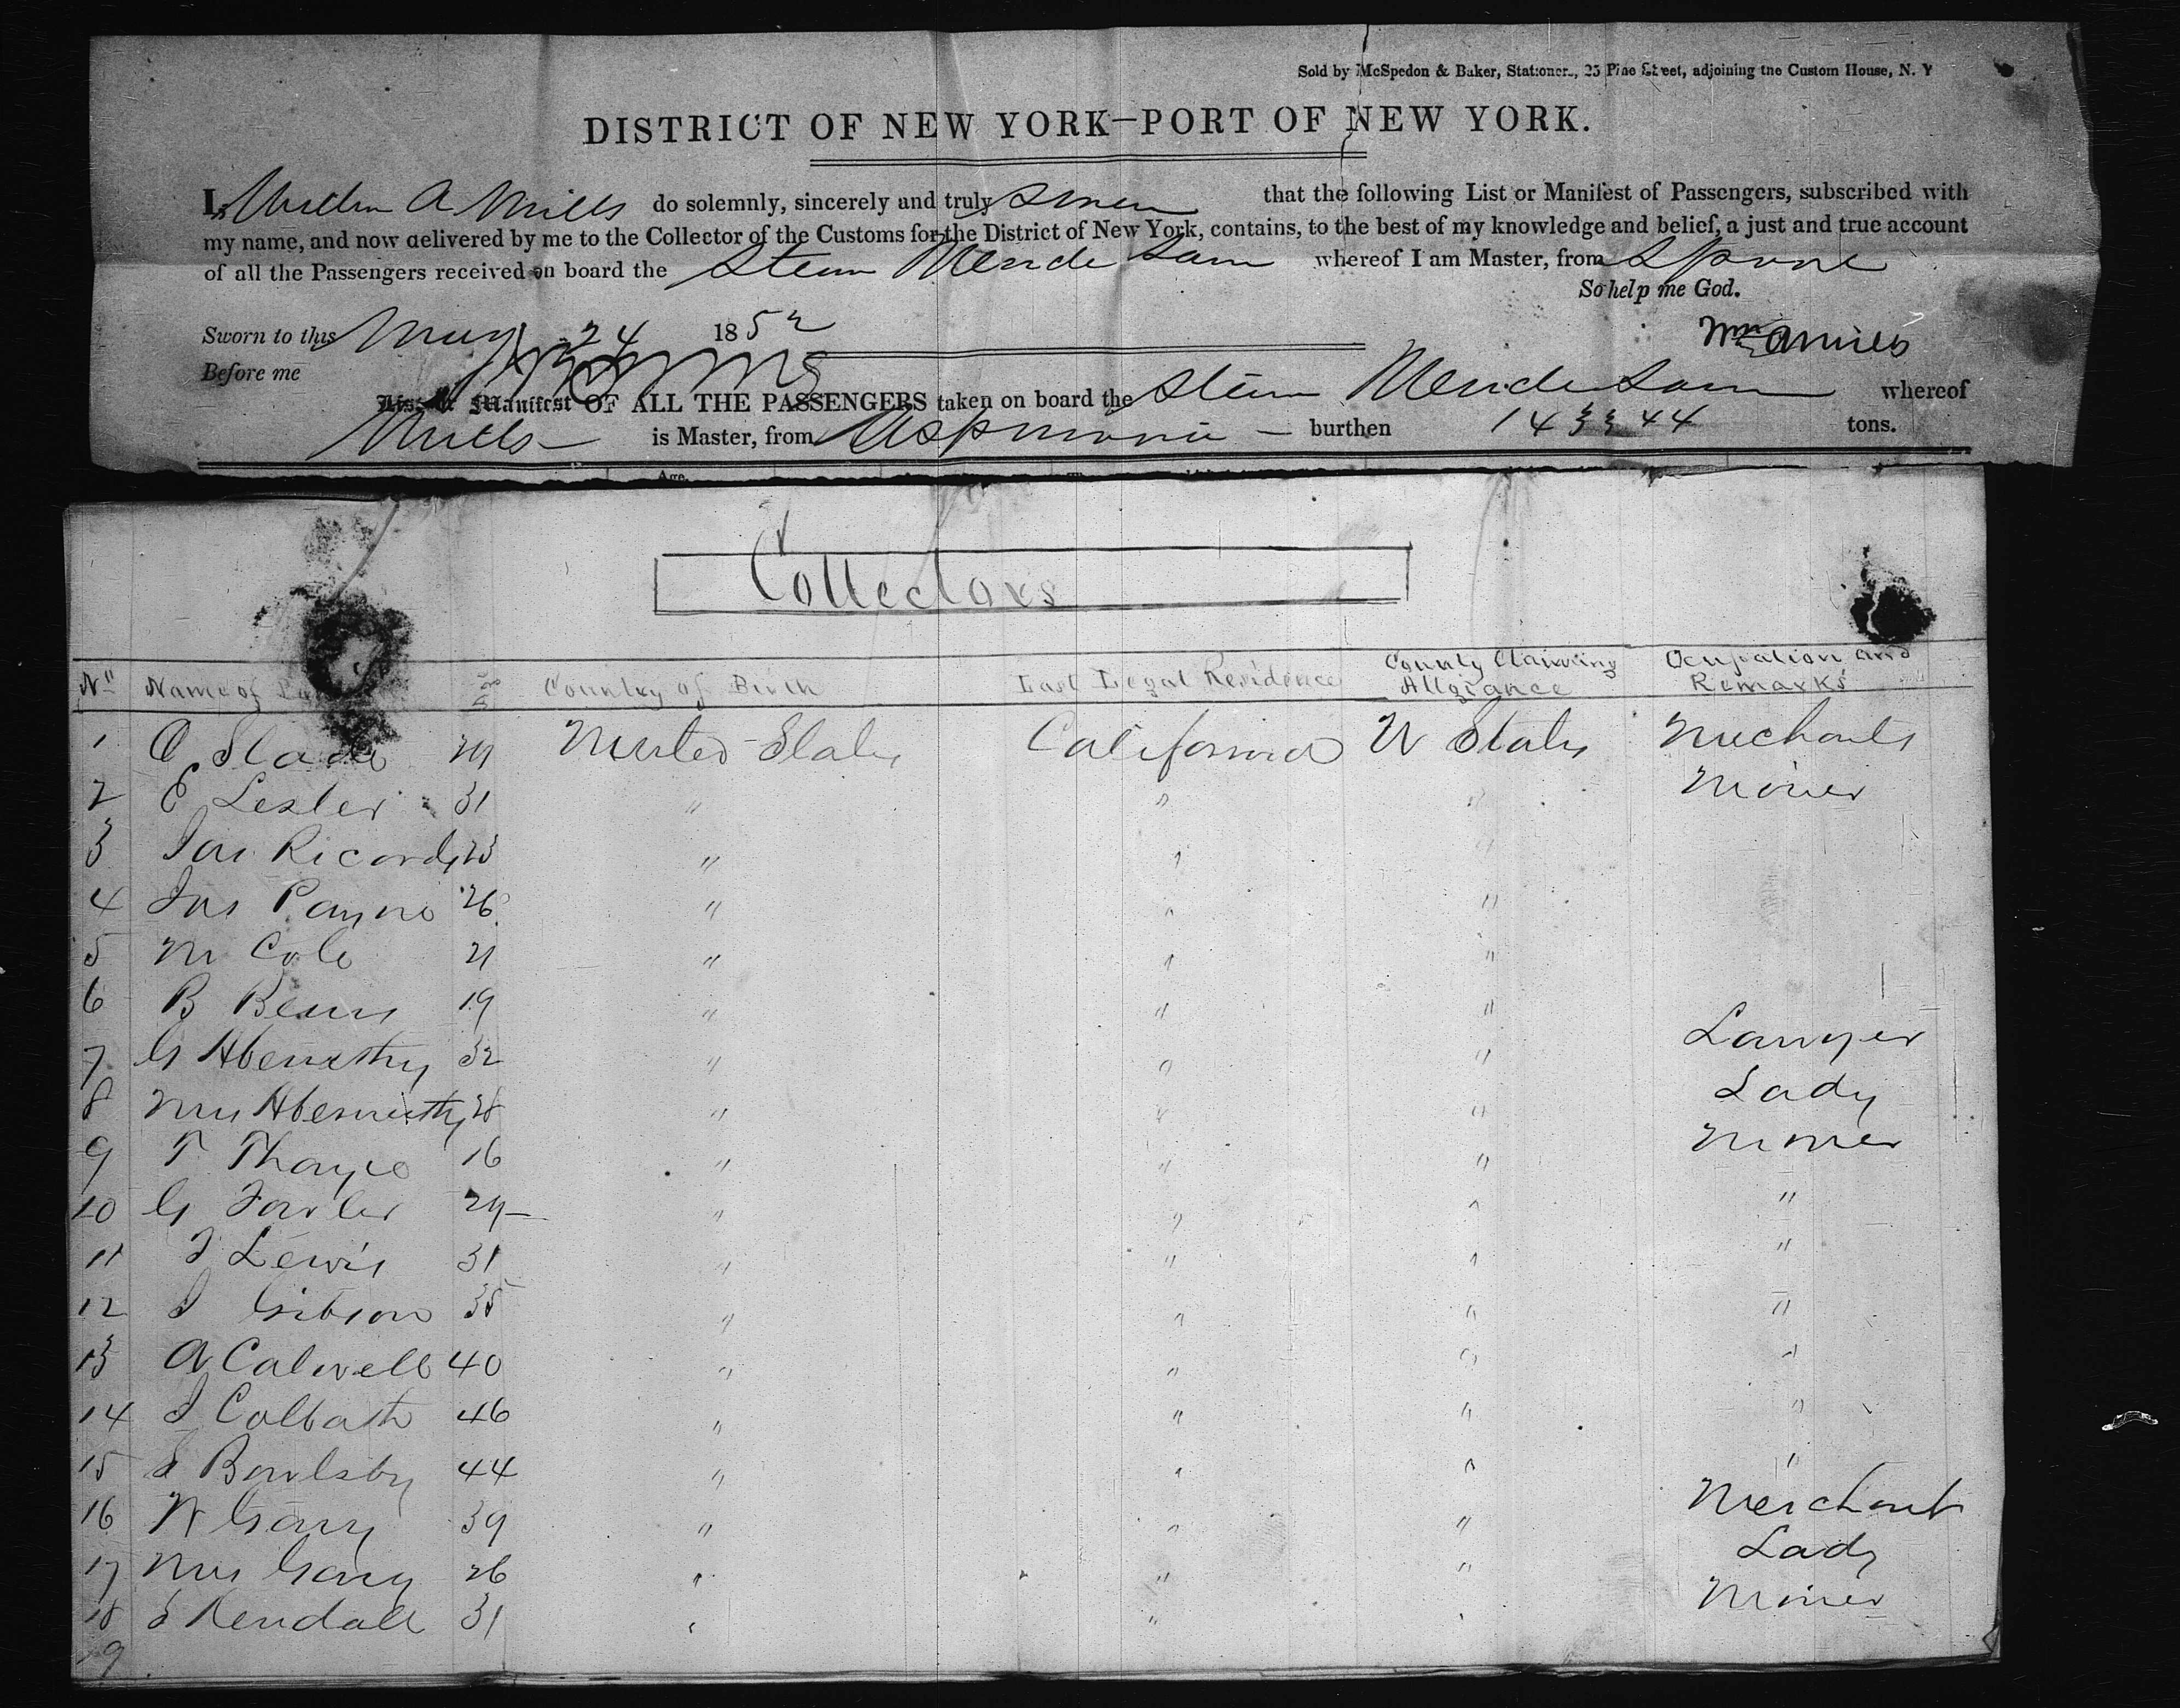 Sold by McSpedon & Baker, Stationers, 25 Pine Street, adjoining the Custom House, N. Y
DISTRICT OF NEW YORK—PORT OF NEW YORK.
I, A Mills do solemnly, sincerely and truly that the following List or Manifest of Passengers, subscribed with
my name, and now delivered by me to the Collector of the Customs for the District of New York, contains, to the best of my knowledge and belief, a just and true account
of all the Passengers received on board the whereof I am Master, from
So help me God.
Sworn to this May 24 1852
Wm A Mills
Before me
List or Manifest OF ALL THE PASSENGERS taken on board the whereof
Mills is Master, from burthen tons.
Age.
Collectors
No Name of Age Country of Birth Last Legal Residence County Claiming Allgiance Ocupation and Remarks
1 O Slade United States California U States Mechants
2 E Lester 31 " " " Miner
3 Jas Ricords 23 " " "
4 Jas Payne 26 " " "
5 M Cole 21 " " "
6 B Beans 19 " " "
7 G Abernethy 32 " " " Lawyer
8 Mrs Abernethy 28 " " " Lady
9 T Thayer 16 " " " Miner
10 G Fowler 29 " " " "
11 J Lewis 31 " " " "
12 J Gibson 35 " " " "
13 A Calwell 40 " " " "
14 J Colbath 46 " " " "
15 J Bowlsby 44 " " " "
16 W Gary 39 " " " Merchant
17 Mrs Gary 26 " " " Lady
18 S Kendall 31 " " " Miner
19